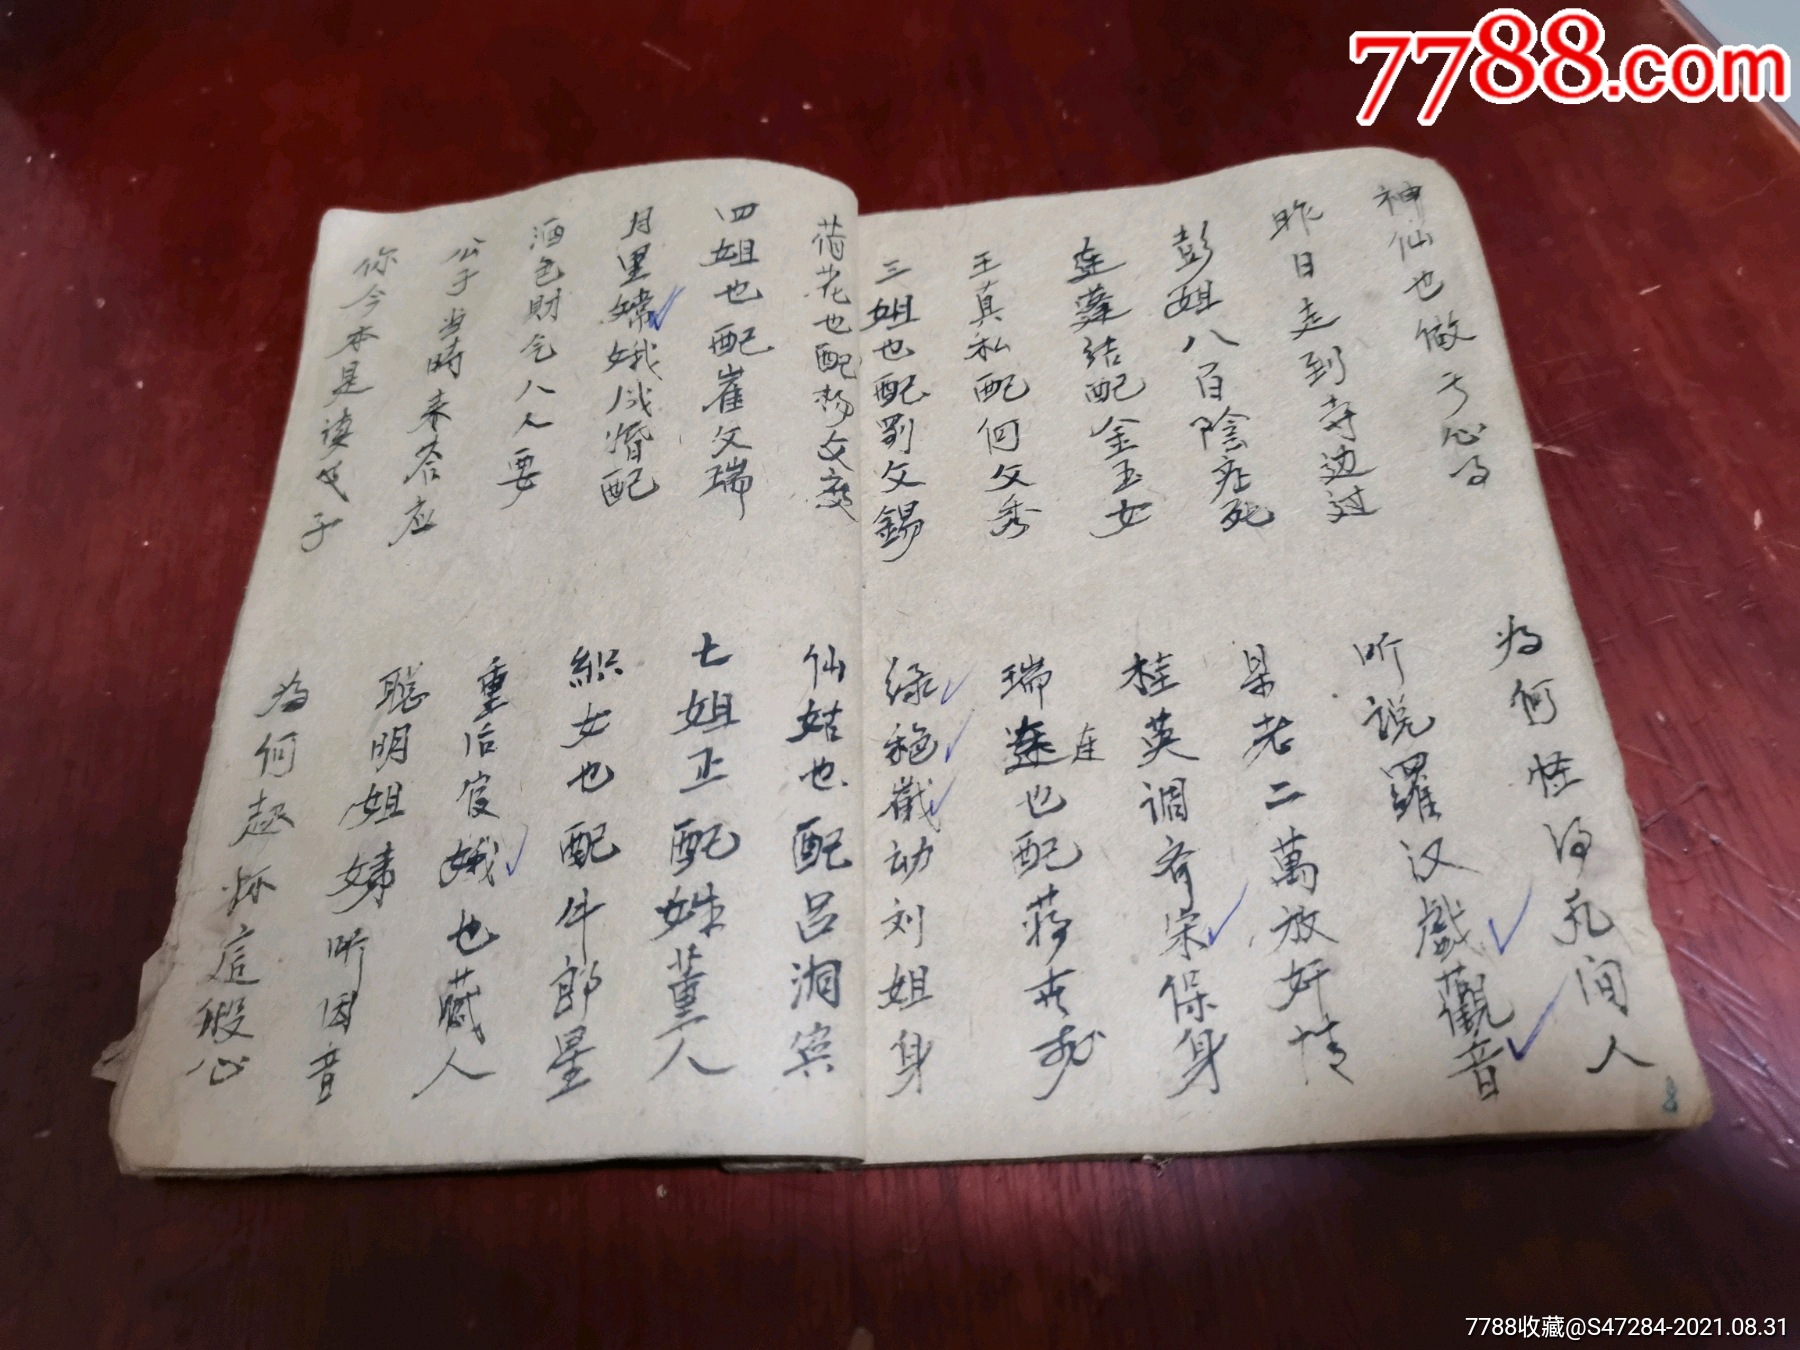 7788.com
神仙也做亏心事
为何怪得凡间人
昨日走到寺边过
听说羅汉戲觀音
彭姐八百陰症死
杲老二萬放奸情
蓮結配金玉女
桂英调有宋保身
王真私配何文秀
瑞蓮也配蒋世
三姐也配劉文錫
绿袍截劫刘姐身
荷花也配杨文
仙姑也配吕洞宾
四姐也配崔文瑞
七姐正配姓董人
月里嫦娥成婚配
織女也配牛郎星
酒色財气人人要
重后宫娥也藏人
公子当時来答应
聪明姐姊听因音
你今本是读之子
为何起坏這假心
8
7788收藏@S47284-2021.08.31